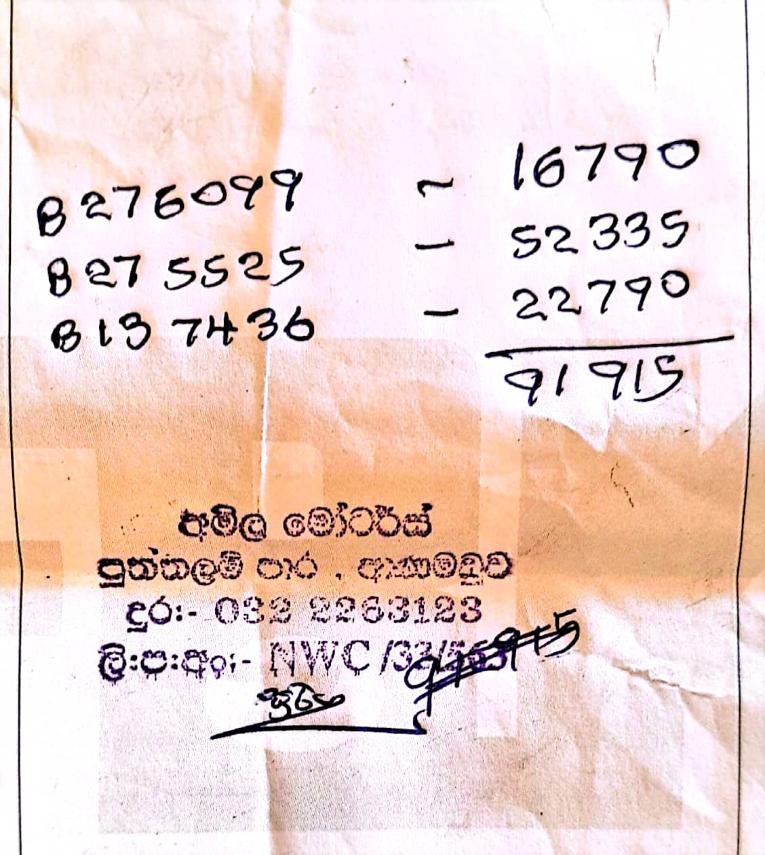 B276099 - 16790
B275525 - 52335
B137436 - 22790
91915
අමිල මෝටර්ස්
පුත්තලම් පාර , ආණමඩුව
දුර:- 032 2263123
ලි:ප:අං:- NWC/33/
91915